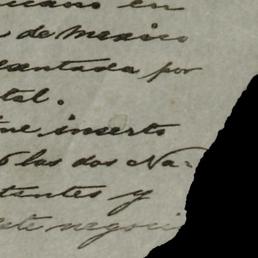 icano en
de Mexico
sentada por
tal.
ue inserto
las dos Na-
tantes y
este negoci